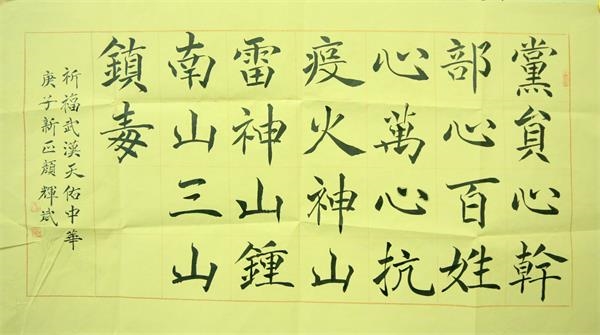 黨員心幹
部心百姓
心萬心抗
疫火神山
雷神山鍾
南山三山
鎮毒
祈福武漢天佑中華
庚子新正顏輝斌